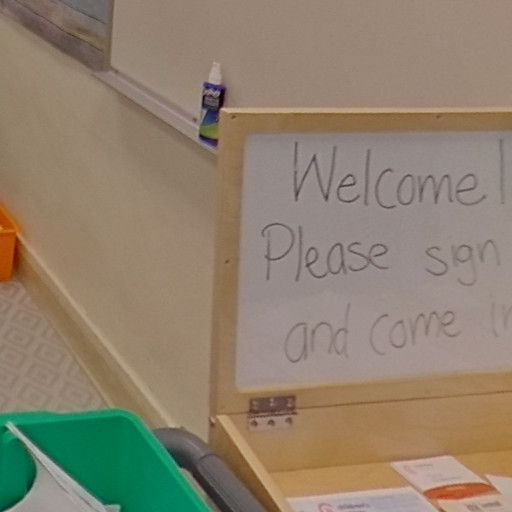 Welcome!
Please sign
and come in